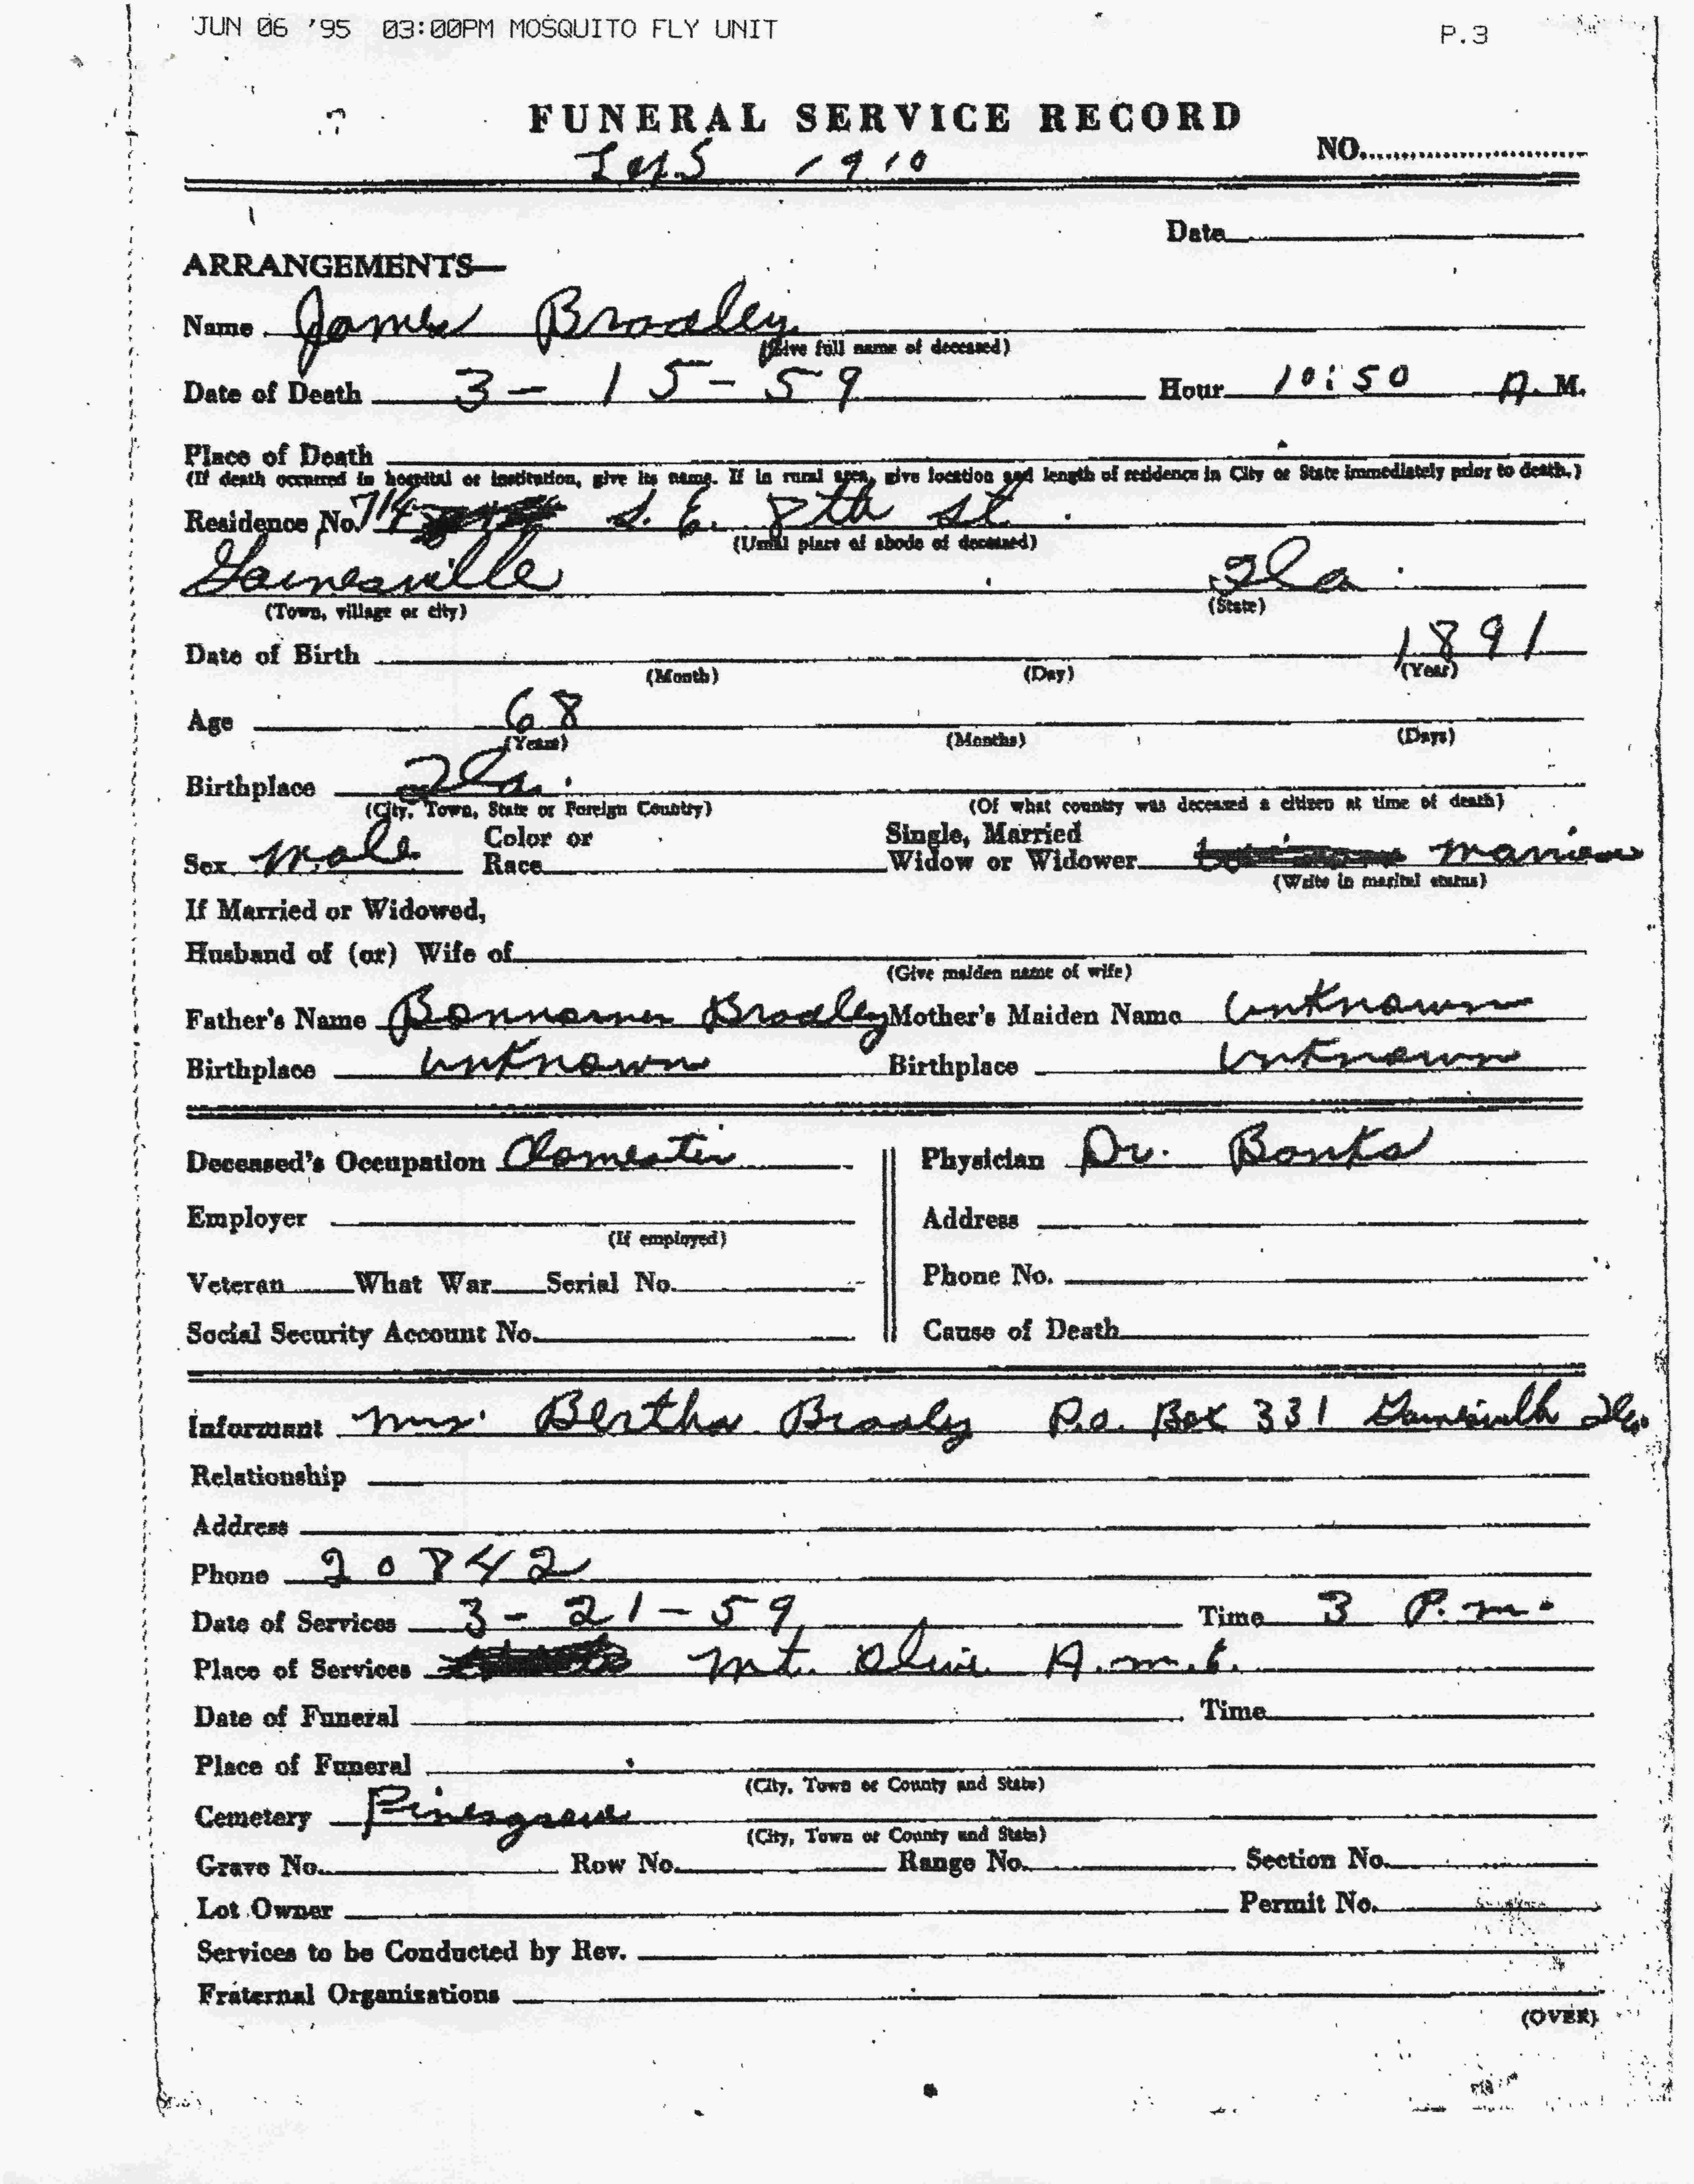 JUN 06 '95 03:00PM MOSQUITO FLY UNIT P.3
FUNERAL SERVICE RECORD
NO.
1910
Date
ARRANGEMENTS—
Name James Bradley
(Give full name of deceased)
Date of Death 3-15-59 Hour 10:50 A. M.
Place of Death
(If death occurred in hospital or institution, give its name. If in rural area, give location and length of residence in City or State immediately prior to death.)
Residence No. 714 S. E. 8th St.
(Usual place of abode of deceased)
Gainesville Fla.
(Town, village or city) (State)
Date of Birth 1891
(Month) (Day) (Year)
Age 68
(Years) (Months) (Days)
Birthplace Fla.
(City, Town, State or Foreign Country) (Of what country was deceased a citizen at time of death)
Color or Single, Married
Sex male Race Widow or Widower
(Write in marital status)
If Married or Widowed,
Husband of (or) Wife of
(Give maiden name of wife)
Father's Name Bradley Mother's Maiden Name Unknown
Birthplace Unknown Birthplace Unknown
Deceased's Occupation Physician Dr. Banks
Employer Address
(If employed)
Veteran What War Serial No. Phone No.
Social Security Account No. Cause of Death
Informant Mrs. Bertha Bradley P.O. Box 331 Gainesville Fla.
Relationship
Address
Phone 20842
Date of Services 3-21-59 Time 3 P.m.
Place of Services Mt. Olive A.M.E.
Date of Funeral Time
Place of Funeral
(City, Town or County and State)
Cemetery Pinesgrove
(City, Town or County and State)
Grave No. Row No. Range No. Section No.
Lot Owner Permit No.
Services to be Conducted by Rev.
Fraternal Organizations
(OVER)